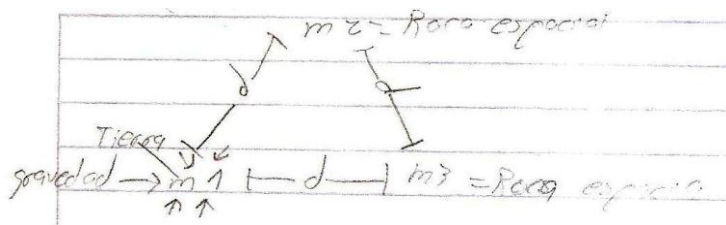 m2 = Roca espacial
d
d
Tierra
gravedad → m1 |— d —| m3 = Roca espacial